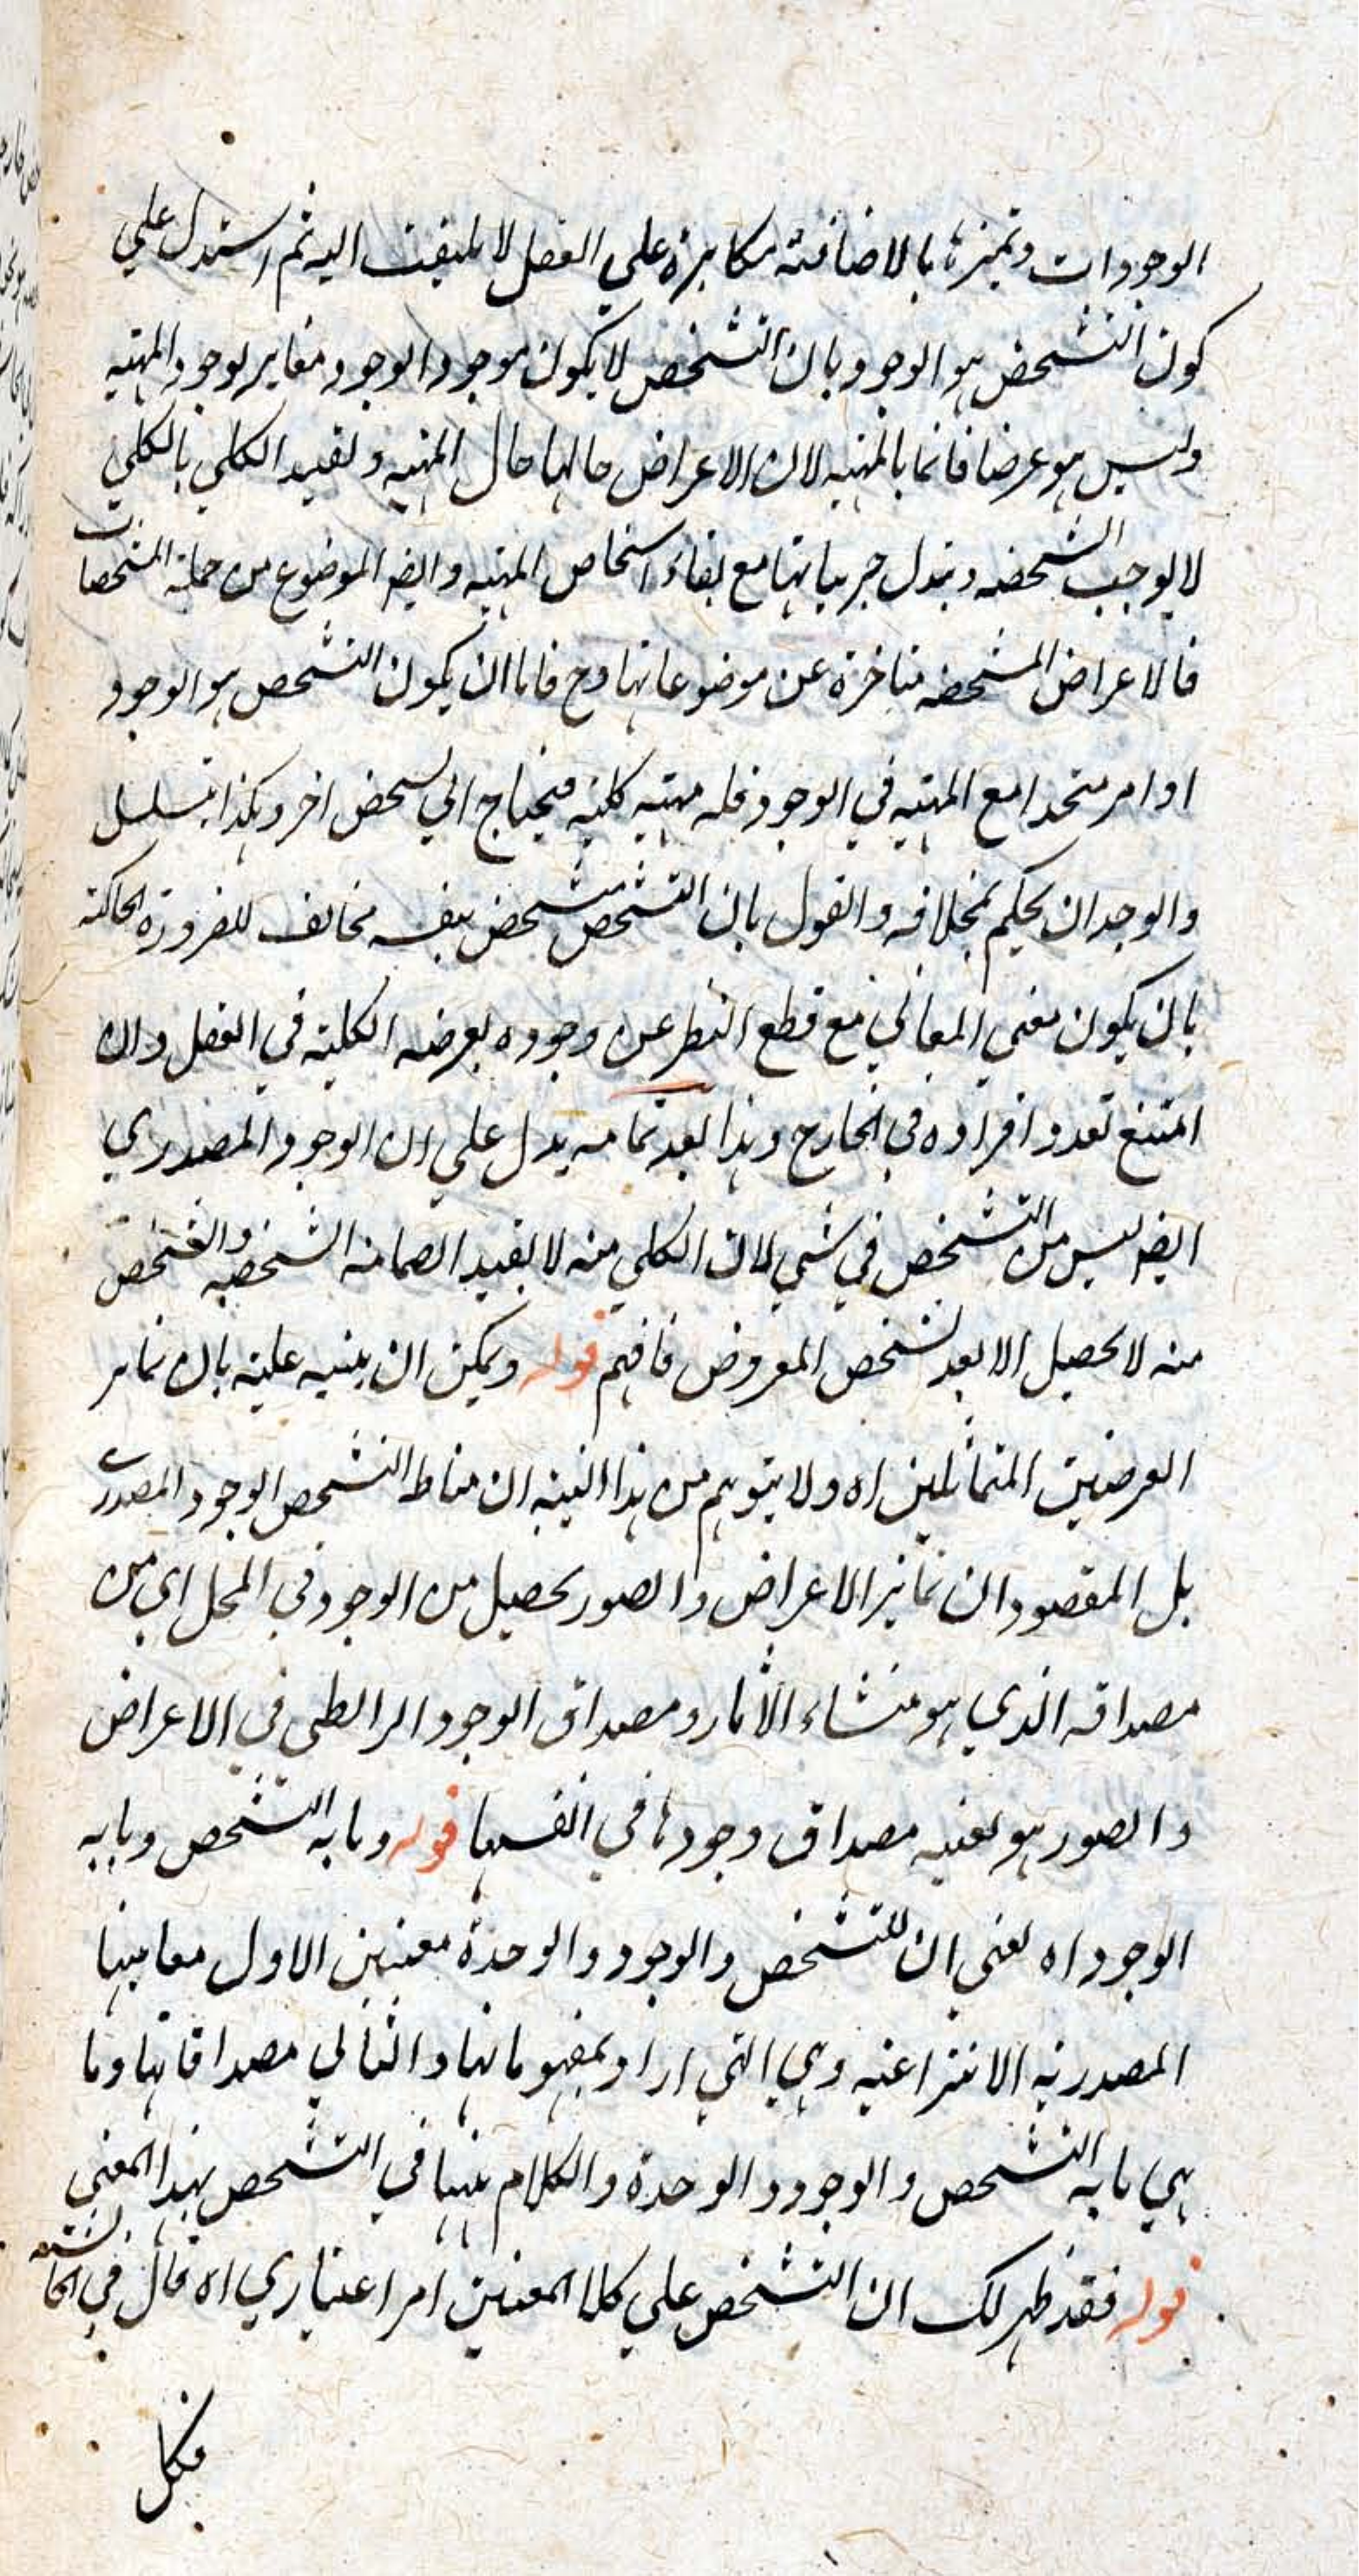 الوجودات وتميزها بالاضافته مكابرة على العقل لا يلتفت اليه ثم استدل علي
كون التشخص هو الوجود بان التشخص لا يكون موجودا لوجود مغاير لوجود المهية
وليس هو عرضا قائما بالمهية لان الاعراض حالها حال المهية وتقييد الكلي بالكلي
لا يوجب الشخصية وتبدل جزئياتها مع بقاء اشخاص المهية وايضا الموضوع من جملة المشخصات
فالاعراض المشخصه متاخرة عن موضوعاتها وح فاما ان يكون التشخص هو الوجود
او امر متحدا مع المهية في الوجود فله مهية كلية فيحتاج الي تشخص اخر وهكذا يتسلسل
والوجدان يحكم بخلافه والقول بان التشخص متشخص بنفسه مخالف للضرورة الحاكمة
بان يكون معني المعاني مع قطع النظر عن وجوده يعرضه الكلية في العقل وان
امتنع تعدد افراده في الخارج وهذا بعد تمامه يدل علي ان الوجود المصدري
ايضا ليس من التشخص في شي لان الكلي منه لا يفيد انضمامه الشخصية والشخص
منه لا يحصل الا بعد تشخص المعروض فافهم قوله ويمكن ان ينبه عليه بان تمايز
العرضين المتماثلين اه ولا يتوهم من هذا التنبيه ان مناط التشخص الوجود المصدري
بل المقصود ان تمايز الاعراض والصور يحصل من الوجود في المحل اي من
مصداقه الذي هو منشاء الآثار ومصداق الوجود الرابطي في الاعراض
والصور هو بعينه مصداق وجودها في انفسها قوله وما به التشخص وما به
الوجود اه يعني ان للتشخص والوجود والوحدة معنيين الاول معانيها
المصدرية الانتزاعية وهي التي اراد بمفهوماتها والثاني مصداقاتها وما
هي ما به التشخص والوجود والوحدة والكلام ههنا في التشخص بهذا المعني
قوله فقد ظهر لك ان التشخص علي كلا المعنيين امر اعتباري اه قال في الحاشية
فكل